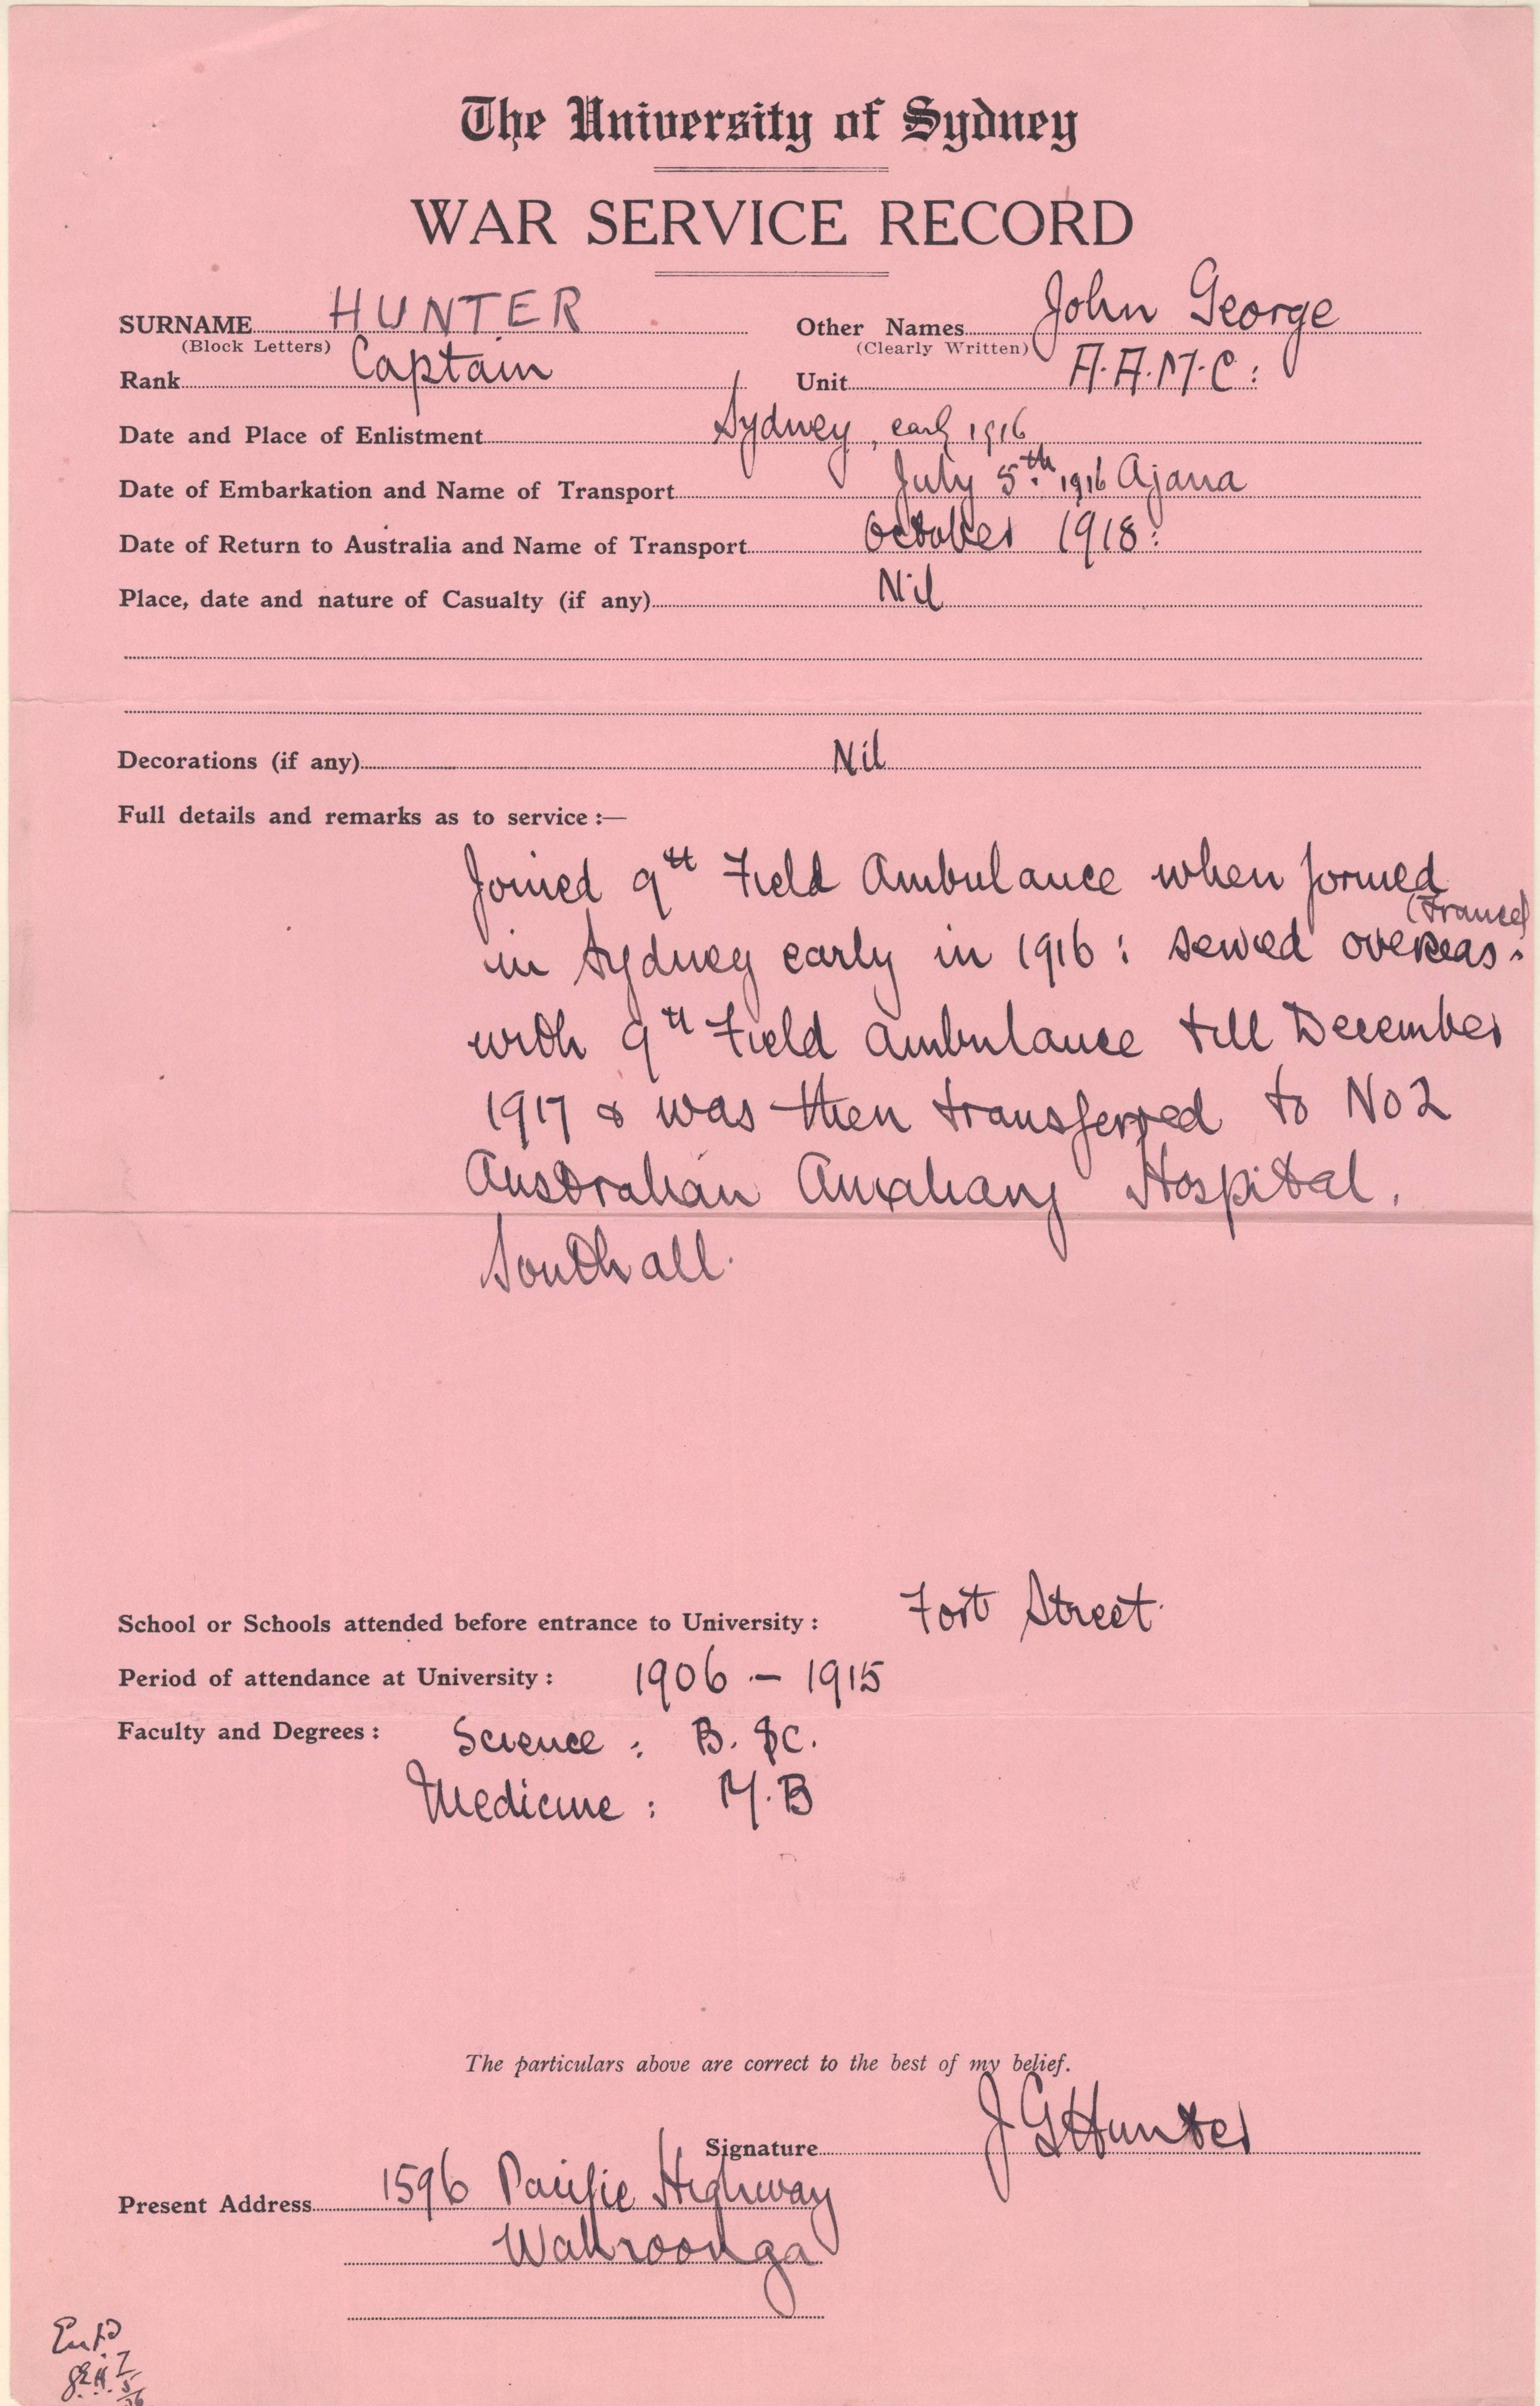 The University of Sydney
WAR SERVICE RECORD
SURNAME HUNTER Other Names John George
(Block Letters) (Clearly Written)
Rank Captain Unit A.A.M.C:
Date and Place of Enlistment Sydney, early 1916
Date of Embarkation and Name of Transport July 5th 1916 Ajana
Date of Return to Australia and Name of Transport October 1918:
Place, date and nature of Casualty (if any) Nil
Decorations (if any) Nil
Full details and remarks as to service :—
Joined 9th Field Ambulance when formed
in Sydney early in 1916 : served overseas. (France)
with 9th Field Ambulance till December
1917 & was then transferred to No 2
Australian Auxiliary Hospital,
Southall.
School or Schools attended before entrance to University : Fort Street.
Period of attendance at University : 1906 – 1915
Faculty and Degrees : Science : B. Sc.
Medicine : M.B
The particulars above are correct to the best of my belief.
Signature J G Hunter
Present Address 1596 Pacific Highway
Wahroonga
Ent'd